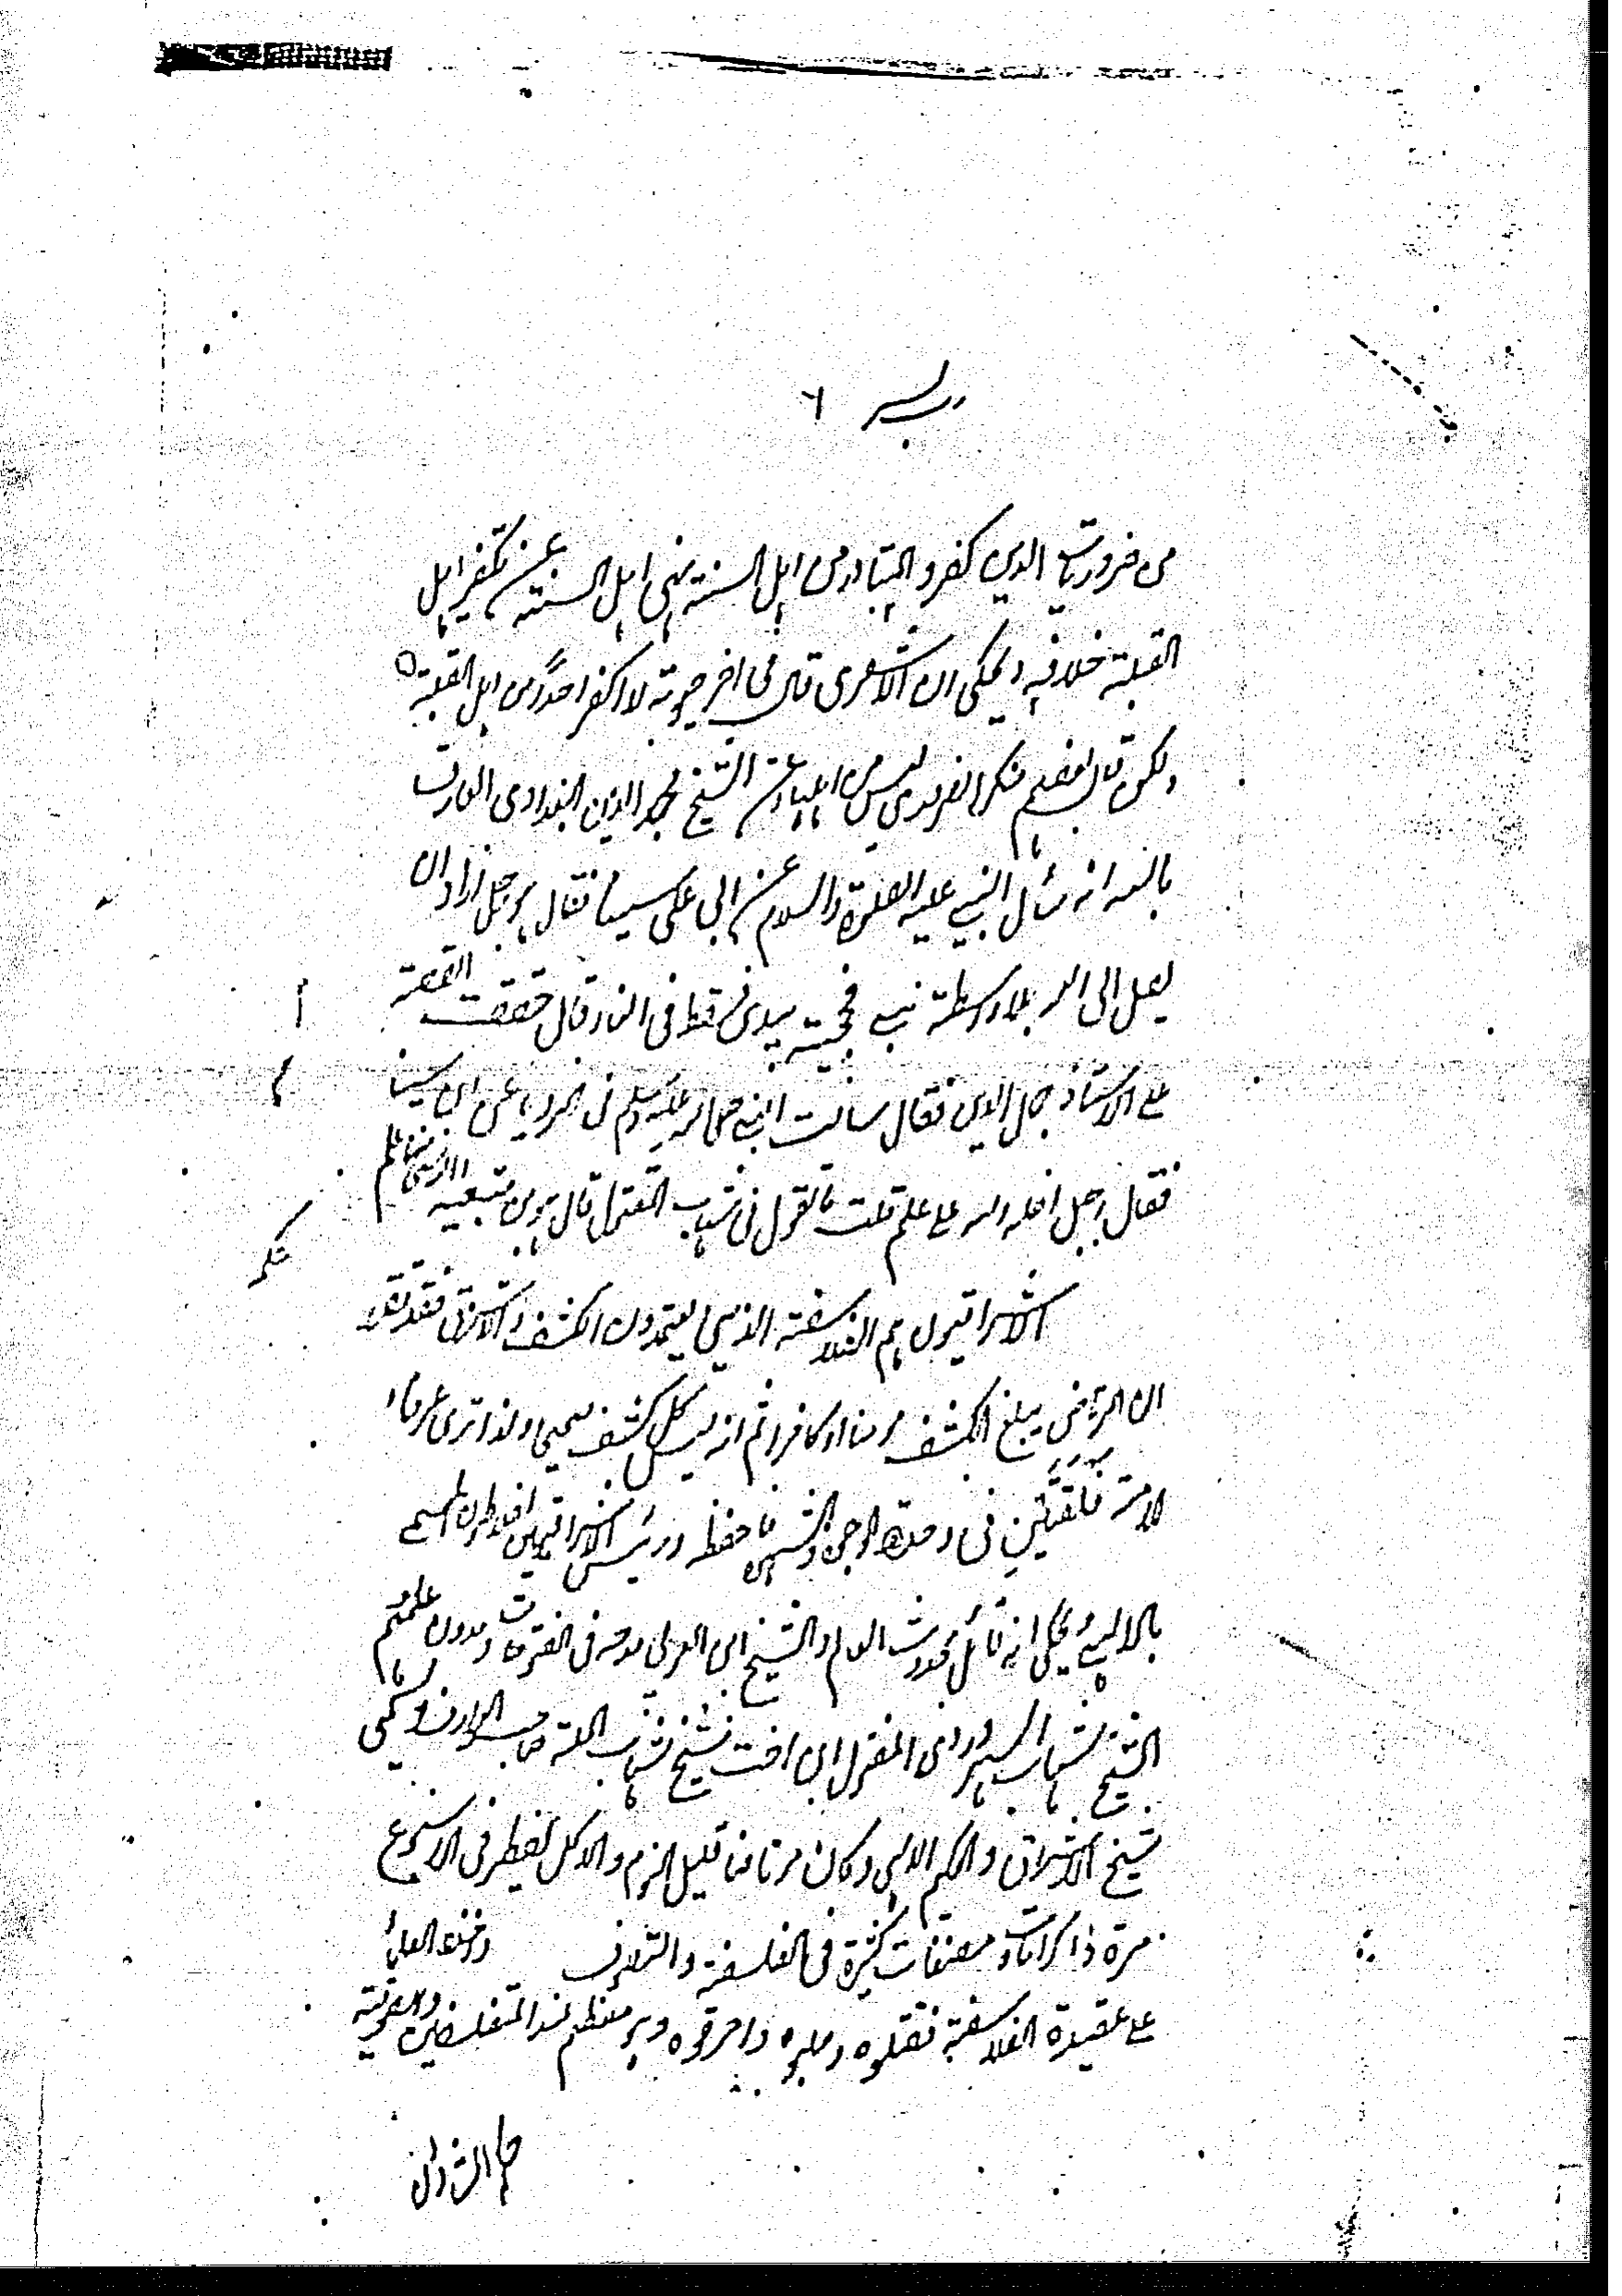 من ضروريات الدين كفر والمتبادر من اهل السنة نهى اهل السنة عن تكفير اهل
القبلة خلافه ويحكى ان الاشعرى قال فى اخر حيوته لا اكفر احداً من اهل القبلة
ولكن قال بعضهم منكر الضرورى ليس من اهلها وعن الشيخ مجد الدين البغدادى العارف
بالله انه سأل النبى عليه الصلوة والسلام عن ابى على سينا فقال هو رجل اراد ان
يصل الى الله بلا واسطة نبى فحجبته بيدى فسقط فى النار قال حققت القصة
على الاستاذ جمال الدين فقال سالت النبى صلى الله عليه وسلم فى الرويا عن ابن سينا
فقال رجل اضله الله على علم قلت ما تقول فى شهاب المقتول قال هو من متبعيه
الاشراقيون هم الفلاسفة الذين يعتمدون الكشف والاشراق فقد تقدم
ان المرتاض يبلغ الكشف مومنا او كافرا ثم انه ليس كل كشف صحيحا ولذا ترى عرفاء
الامة فى وحدة الوجود والشهود فاحفظه ورئيس الاشراقيين افلاطون المسمى
بالالهى ويحكى انه قائل بحدوث العالم والشيخ ابن العربى مدحه فى الفتوحات ومدون علمهم
الشيخ شهاب السهروردى المقتول ابن اخت شيخ شهاب الملة صاحب العوارف ويسمى
شيخ الاشراق والحكيم الالهى وكان مرتاضا قليل النوم والاكل يفطر فى الاسبوع
مرة ذا كرامات ومصنفات كثيرة فى الفلسفة والتصوف العلماء
على عقيدة الفلاسفة فقتلوه وصلبوه واحرقوه وهو معظم عند المتفلسفين والصوفية